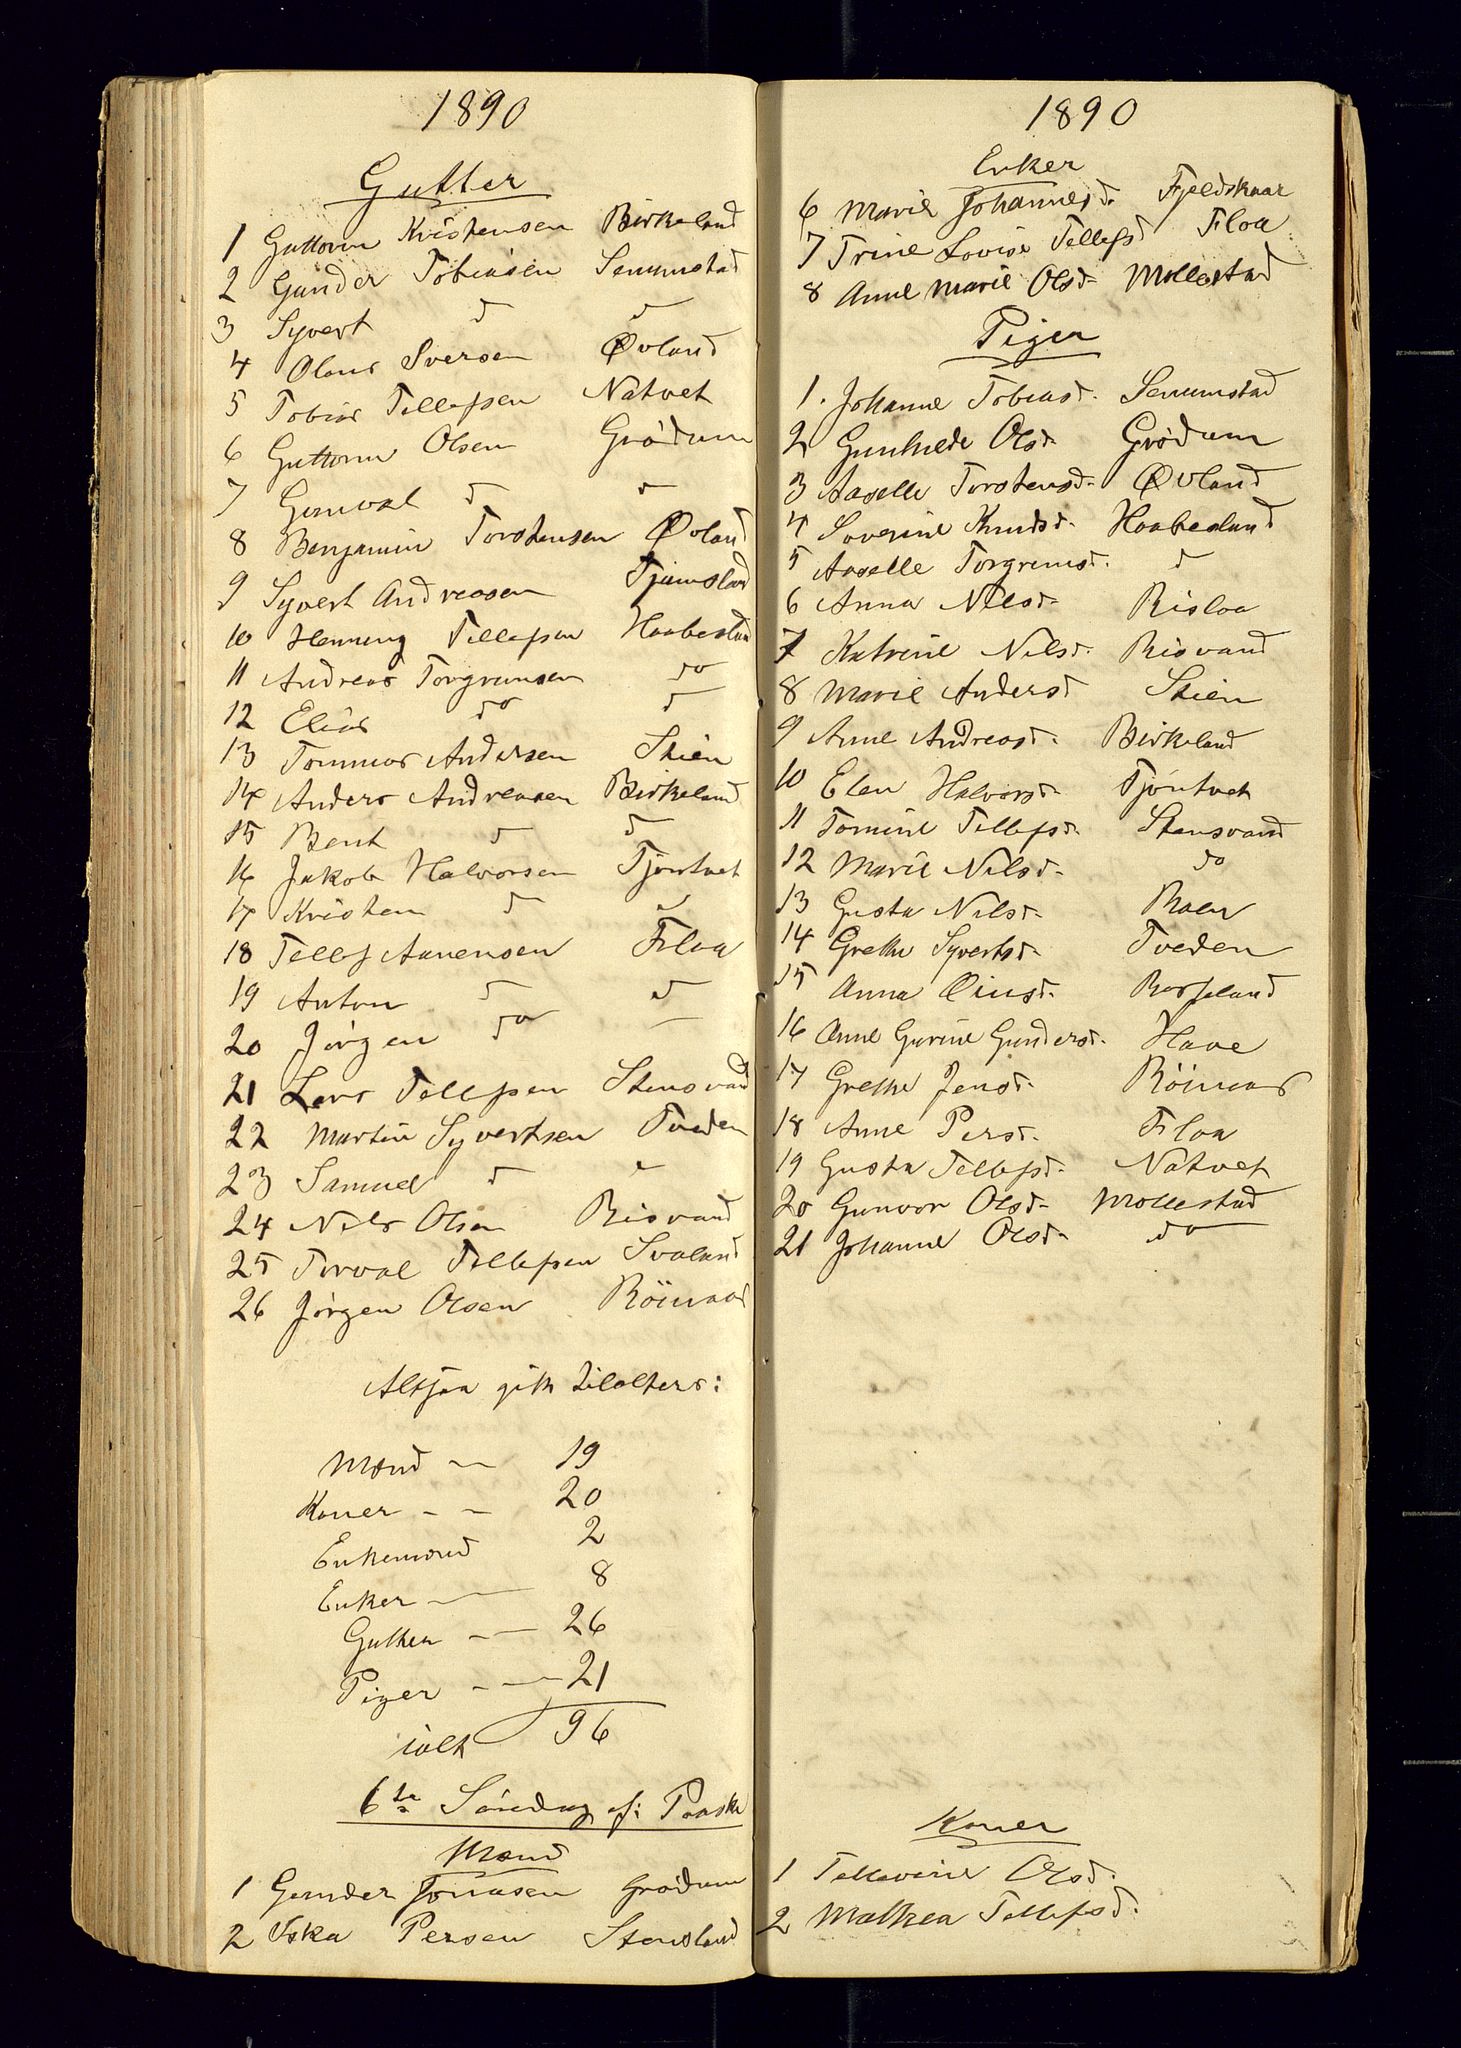 1890
Gutter
1 Guttorm Kristensen Birkeland
2 Gunder Tobiasen Senumstad
3 Syvert d d
4 Olaus Iversen Øvland
5 Tobias Tellefsen Natvet
6 Guttorm Olsen Grödum
7 Gunval d d
8 Benjamin Torstensen Øvland
9 Syvert Andreasen Tjamsland
10 Henning Tellefsen Haabesland
11 Andreas Torgrimsen do
12 Elias do d
13 Tommas Andersen Skien
14 Anders Andreasen Birkeland
15 Bent d d
16 Jakob Halvorsen Tjöntvet
17 Kristen d d
18 Tellef Aanensen Floa
19 Anton d d
20 Jörgen do —
21 Lars Tellefsen Stensvand
22 Martin Syvertsen Tveden
23 Samuel d d
24 Nils Olsen Risvand
25 Torval Tellefsen Svaland
26 Jörgen Olsen Röinaas
Altsaa gik tilalters:
Mænd — 19
Koner - - 20
Enkemænd 2
Enker — 8
Gutter — 26
Piger - — 21
ialt 96
6te Söndag ef: Paaske
Mænd
1 Gunder Jonasen Grödum
2 Aska Persen Stensland
1890
Enker
6 Marie Johannesd. Fjeldskaar
7 Trine Lovise Tellefsd Floa
8 Anne Marie Olsd. Mollestad
Piger
1. Johanne Tobiasd. Senumstad
2 Gunhilde Olsd. Grödum
3 Aaselle Torstensd. Øvland
4 Severine Knudsd. Haabesland
5 Aaselle Torgrimsd. d
6 Anna Nilsd. Risloa
7 Katrine Nilsd. Risvand
8 Marie Andersd Skien
9 Anne Andreasd. Birkeland
10 Elen Halvorsd. Tjöntvet
11 Tomine Tellefsd. Stensvand
12 Marie Nilsd. do
13 Gusta Nilsd. Roen
14 Grethe Syvertsd. Tveden
15 Anna Einsd. Rosseland
16 Anne Gurine Gundersd. Have
17 Grethe Jensd. Röinaas
18 Anne Persd. Floa
19 Gusta Tellefsd. Natvet
20 Gunvor Olsd. Mollestad
21 Johanne Olsd. do
Koner
1 Tellevine Olsd.
2 Mathea Tellefsd.